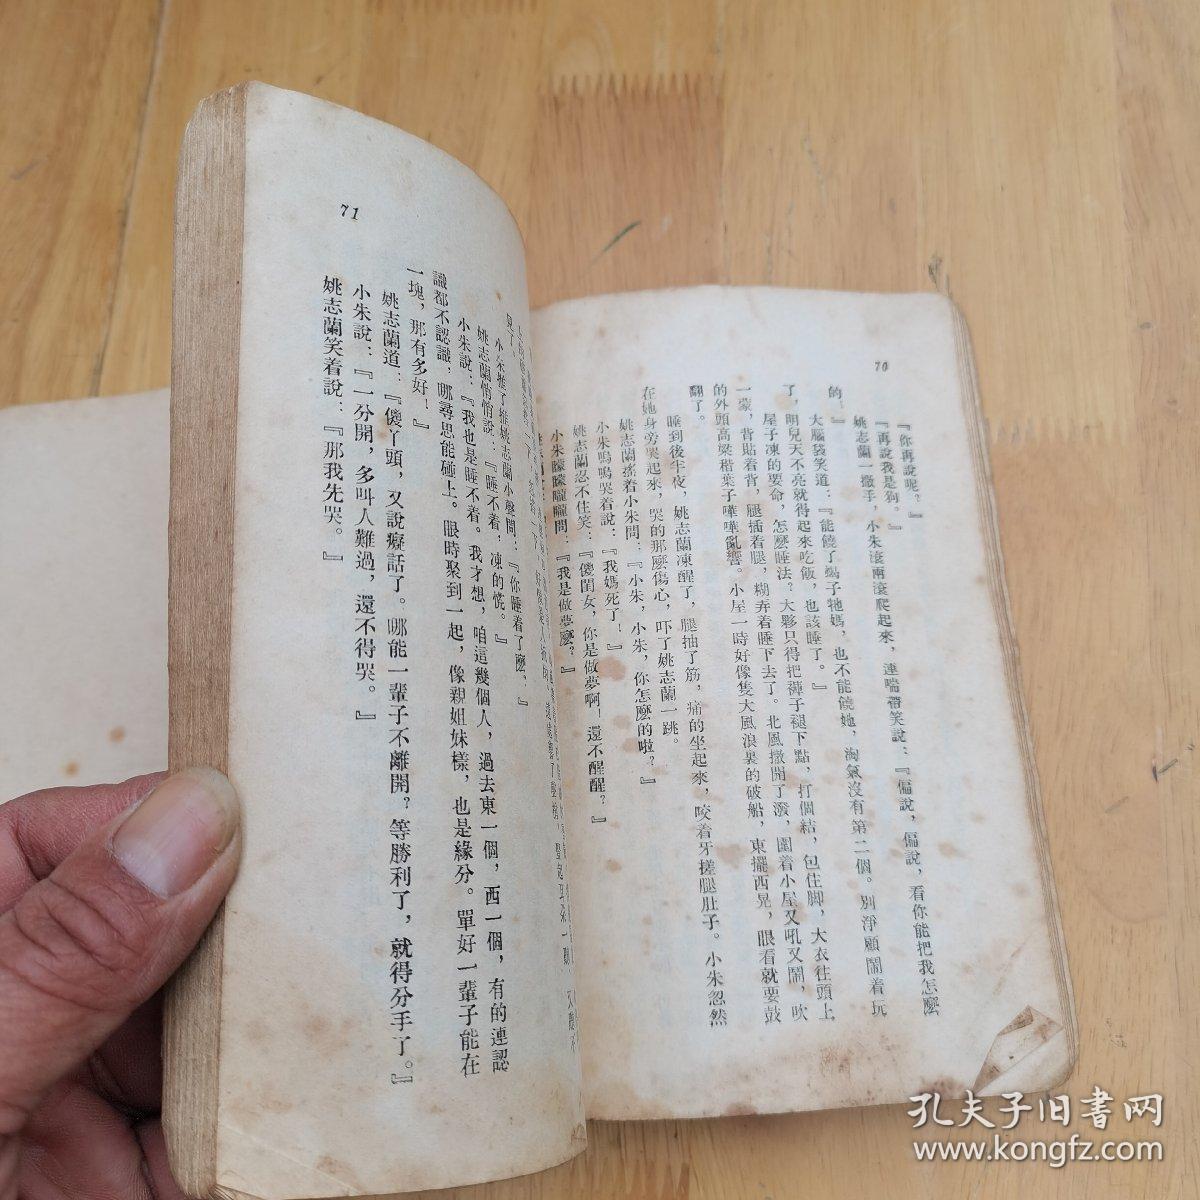 70
『你再說呢？』
『再說我是狗。』
姚志蘭一撒手，小朱滾兩滾爬起來，連喘帶笑說：『偏說，偏說，看你能把我怎麼
的！』
大腦袋笑道：『能饒了蝎子牠媽，也不能饒她，淘氣沒有第二個。別淨顧鬧着玩
了，明兒天不亮就得起來吃飯，也該睡了。』
屋子凍的要命，怎麼睡法？大夥只得把褲子褪下點，打個結，包住脚，大衣往頭上
一蒙，背貼着背，腿插着腿，糊弄着睡下去了。北風撒開了潑，圍着小屋又吼又鬧，吹
的外頭高粱稭葉子嘩嘩亂響。小屋一時好像隻大風浪裏的破船，東擺西晃，眼看就要鼓
翻了。
睡到後半夜，姚志蘭凍醒了，腿抽了筋，痛的坐起來，咬着牙搓腿肚子。小朱忽然
在她身旁哭起來，哭的那麼傷心，吓了姚志蘭一跳。
姚志蘭搖着小朱問：『小朱，小朱，你怎麼的啦？』
小朱嗚嗚哭着說：『我媽死了！』
姚志蘭忍不住笑：『傻閨女，你是做夢啊！還不醒醒？』
小朱矇矇矓矓問：『我是做夢麼？』
71
小朱推了推姚志蘭小聲問：『你睡着了麼？』
姚志蘭悄悄說：『睡不着；凍的慌。』
小朱說：『我也是睡不着。我才想，咱這幾個人，過去東一個，西一個，有的連認
識都不認識，哪尋思能碰上。眼時聚到一起，像親姐妹樣，也是緣分。單好一輩子能在
一塊，那有多好！』
姚志蘭道：『傻丫頭，又說癡話了。哪能一輩子不離開？等勝利了，就得分手了。』
小朱說：『一分開，多叫人難過，還不得哭。』
姚志蘭笑着說：『那我先哭。』
孔夫子旧書网
www.kongfz.com